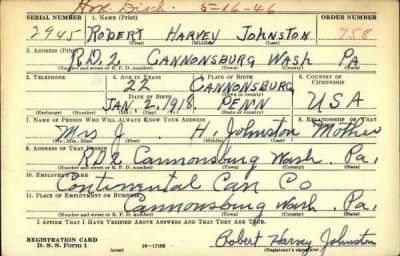 Hon. Disch. 5-16-46
SERIAL NUMBER 1. NAME (Print) ORDER NUMBER
2945 ROBERT HARVEY JOHNSTON 758
(First) (Middle) (Last)
2. ADDRESS (Print)
R.D.2 CANNONSBURG WASH PA
(Number and street or R. F. D. number) (Town) (County) (State)
3. TELEPHONE 4. AGE IN YEARS 5. PLACE OF BIRTH 6. COUNTRY OF CITIZENSHIP
22 CANNONSBURG
DATE OF BIRTH (Town or county)
JAN. 2, 1918 PENN USA
(Exchange) (Number) (Mo.) (Day) (Yr.) (State or country)
7. NAME OF PERSON WHO WILL ALWAYS KNOW YOUR ADDRESS 8. RELATIONSHIP OF THAT PERSON
Mrs J. H. Johnston Mother
(Mr., Mrs., Miss) (First) (Middle) (Last)
9. ADDRESS OF THAT PERSON
RD2 Cannonsburg Wash. Pa.
(Number and street or R. F. D. number) (Town) (County) (State)
10. EMPLOYER'S NAME
Continental Can Co
11. PLACE OF EMPLOYMENT OR BUSINESS
Cannonsburg Wash. Pa.
(Number and street or R. F. D. number) (Town) (County) (State)
I AFFIRM THAT I HAVE VERIFIED ABOVE ANSWERS AND THAT THEY ARE TRUE.
REGISTRATION CARD
D. S. S. Form 1 16-17105 Robert Harvey Johnston